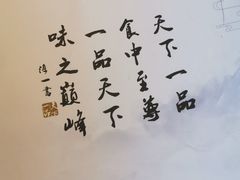 天下一品
食中至尊
一品天下
味之巅峰